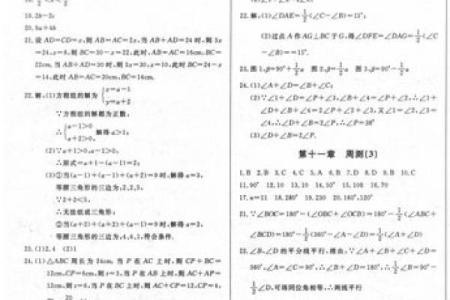 19.2b-2c
20.5a+4b
21.设 AD=CD=x,则 AB=AC=2x.当 AB+AD=24 时,则 3x
=24,x=8,则 BC=30-x=22,此时,AB=AC=16cm,BC=
22cm.当 AB+AD=30 时,则 3x=30,x=10,则 BC=24-x
=14,此时 AB=AC=20cm,BC=14cm.
22.解:(1)方程组的解为 x=a-1
y=a+2
∵方程组的解都为正数,
∴ a-1>0
a+2>0, 解得 a>1;
(2)∵a+1>0,a-1>0,
∴原式=a+1-(a-1)=2;
(3)①当(a-1)+(a-1)+(a+2)=9时,解得a=3,
等腰三角形的三边为:2,2,5,
∵2+2<5,
∴无法组成三角形;
②当(a+2)+(a+2)+(a-1)=9时,解得a=2,
等腰三角形的三边为:4,4,1,符合条件.
23.(1)2,4 (2)1
24.(1)△ABC 周长为 24cm,当 P 在 AC 上时,则 CP+BC=
12cm,CP=6cm,则
则 BC 上时,则 AC+CP=12,CP=4,
22.解:(1)∠DAE=1/2(∠C-∠B)=15°;
(2)过点 A 作 AG⊥BC 于 G,得∠DFE=∠DAG=1/2(∠C
-∠B)=15°.
23.图 1,β=90°+1/2α 图 2,β=1/2α 图 3,β=90°-1/2α
24.(1)∠A+∠D=∠B+∠C;
(2)∵∠1+∠D=∠P+∠3,∠B+∠4=∠P+∠2,∴∠1+
∠D+∠B+∠4=∠P+∠3+∠P+∠2,又∠1=∠2,∠3=
∠4,∴∠D+∠B=2∠P,∴∠P=38°
(3)∠D+∠B=2∠P.
第十一章 周测[3]
1.B 2.B 3.C 4.C 5.A 6.D 7.B 8.D 9.B 10.C
11.90° 12.10 13.10 14.50° 15.108 16.70
17.a=11 18.280° 19.230° 20.180°,120°
21.∵∠BOC=180°-(∠OBC+∠OCB)=180°-1/2(∠ABC+
∠BCD)=180°-1/2(360°-∠A-∠D)=1/2(∠A+∠D)
22.∠B、∠D 的平分线平行,理由:∵∠A+∠B+∠C+∠D=
360°,∠A=∠C=90°,∴∠B+∠D=180°,∴1/2∠B=90°-
1/2∠D,可得同位角相等,∴两线平行